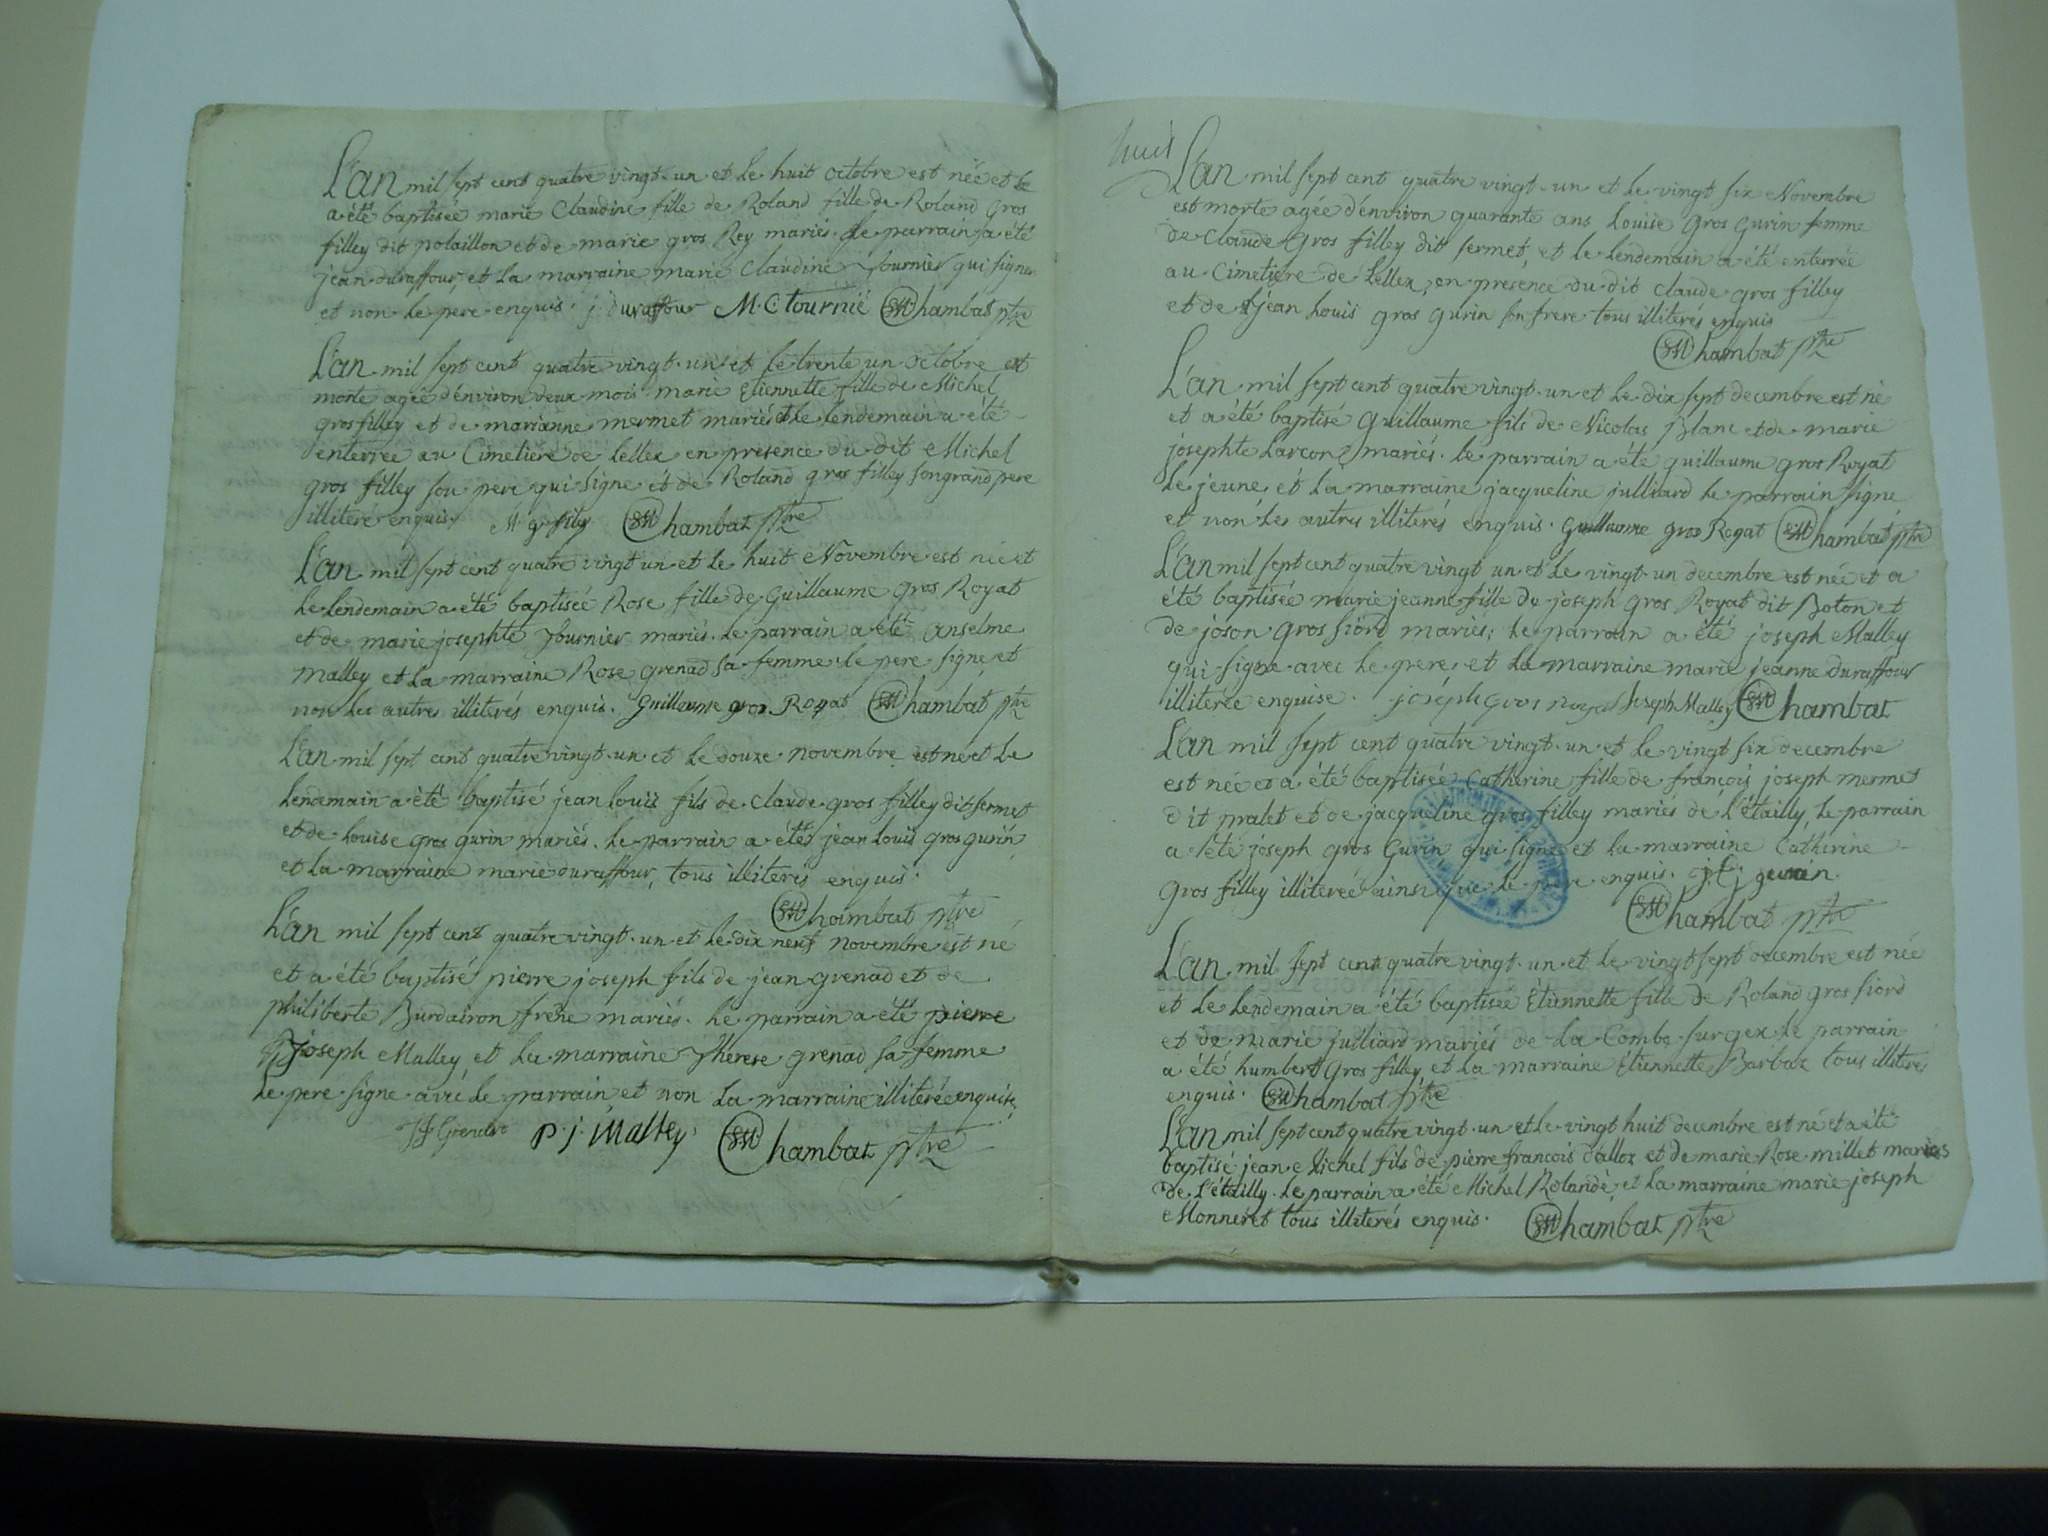 L'an mil sept cent quatre vingt-un et le huit octobre est née et le
a été baptisée marie Claudine fille de Roland fille de Roland Gros
filley dit polaillon et de marie gros Rey mariés. le parrain a été
jean duraffour, et la marraine marie Claudine fournier qui signe
et non le pere enquis. j. Duraffour M. C tournié Chambat ptre
L'an mil sept cent quatre vingt-un et le trente un octobre est
morte agée d'énviron deux mois marie Etiennette fille de Michel
gros filley et de marianne mermet mariés et le lendemain a été
enterrée au Cimetiere de lellex en presence du dit Michel
gros filley son pere qui signe et de Roland gros filley son grand pere
illiteré enquis. M. g. fily Chambat ptre
L'an mil sept cent quatre vingt un et le huit Novembre est née et
le lendemain a été baptisée Rose fille de Guillaume Gros Royat
et de marie josephte fournier mariés. le parrain a été Anselme
Malley et la marraine Rose grenad sa femme le pere signe et
non les autres illiterés enquis. Guillaume gros Royat Chambat ptre
L'an mil sept cent quatre vingt-un et le douze novembre est né et le
lendemain a été baptisé jean louis fils de claude gros filley dit fermet
et de louise gros gurin mariés. le parrain a étés jean louis gros gurin
et la marraine marie duraffour, tous illiterés enquis.
Chambat ptre
L'an mil sept cent quatre vingt-un et le dix neuf novembre est né
et a été baptisé pierre joseph fils de jean grenad et de
philiberte Burdairon frere mariés. le parrain a été pierre
joseph Malley, et la marraine Therese grenad sa femme
le pere signe avec le parrain et non la marraine illiterée enquise.
p. j. Malley Chambat ptre
huit
L'an mil sept cent quatre vingt-un et le vingt six Novembre
est morte agée d'énviron quarante ans Louise Gros Gurin femme
de Claude Gros filley dit fermet, et le lendemain a été enterrée
au Cimetiere de Lellex, en presence du dit Claude gros filley
et de jean Louis gros gurin son frere tous illiterés enquis
Chambat ptre
L'an mil sept cent quatre vingt-un et le dix sept decembre est né
et a été baptisé Guillaume fils de Nicolas Blanc et de marie
josephte Larcon mariés. le parrain a été guillaume gros Royat
le jeune, et la marraine jacqueline julliard le parrain signe
et non les autres illiterés enquis. Guillaume gros Rogat Chambat ptre
L'an mil sept cent quatre vingt un et le vingt-un decembre est née et a
été baptisée marie jeanne fille de joseph Gros Royat dit Boton et
de joson gros fiord mariés; le parrain a été joseph Malley
qui signe avec le pere, et la marraine marie jeanne duraffour
illiterée enquise. joseph Gros royat Joseph Malley Chambat
L'an mil sept cent quatre vingt-un et le vingt six decembre
est née et a été baptisée Catherine fille de françois joseph mermet
dit pralet et de jacqueline gros filley mariés de l'étailly, le parrain
a été joseph gros Gurin qui signe et la marraine Catherine
Gros filley illiterée ainsi que le pere enquis. gurin
Chambat ptre
L'an mil sept cent quatre vingt-un et le vingt sept decembre est née
et le lendemain a été baptisée Etiennette fille de Roland gros fiord
et de marie julliard mariés de la Combe sur gex le parrain
a été humbert Gros filley et la marraine Etiennette Barbaz tous illiterés
enquis. Chambat ptre
L'an mil sept cent quatre vingt-un et le vingt huit decembre est né et a été
baptisé jean Michel fils de pierre francois dalloz et de marie Rose millet mariés
de l'étailly. le parrain a été Michel Rolandé, et la marraine marie joseph
Monneret tous illiterés enquis. Chambat ptre